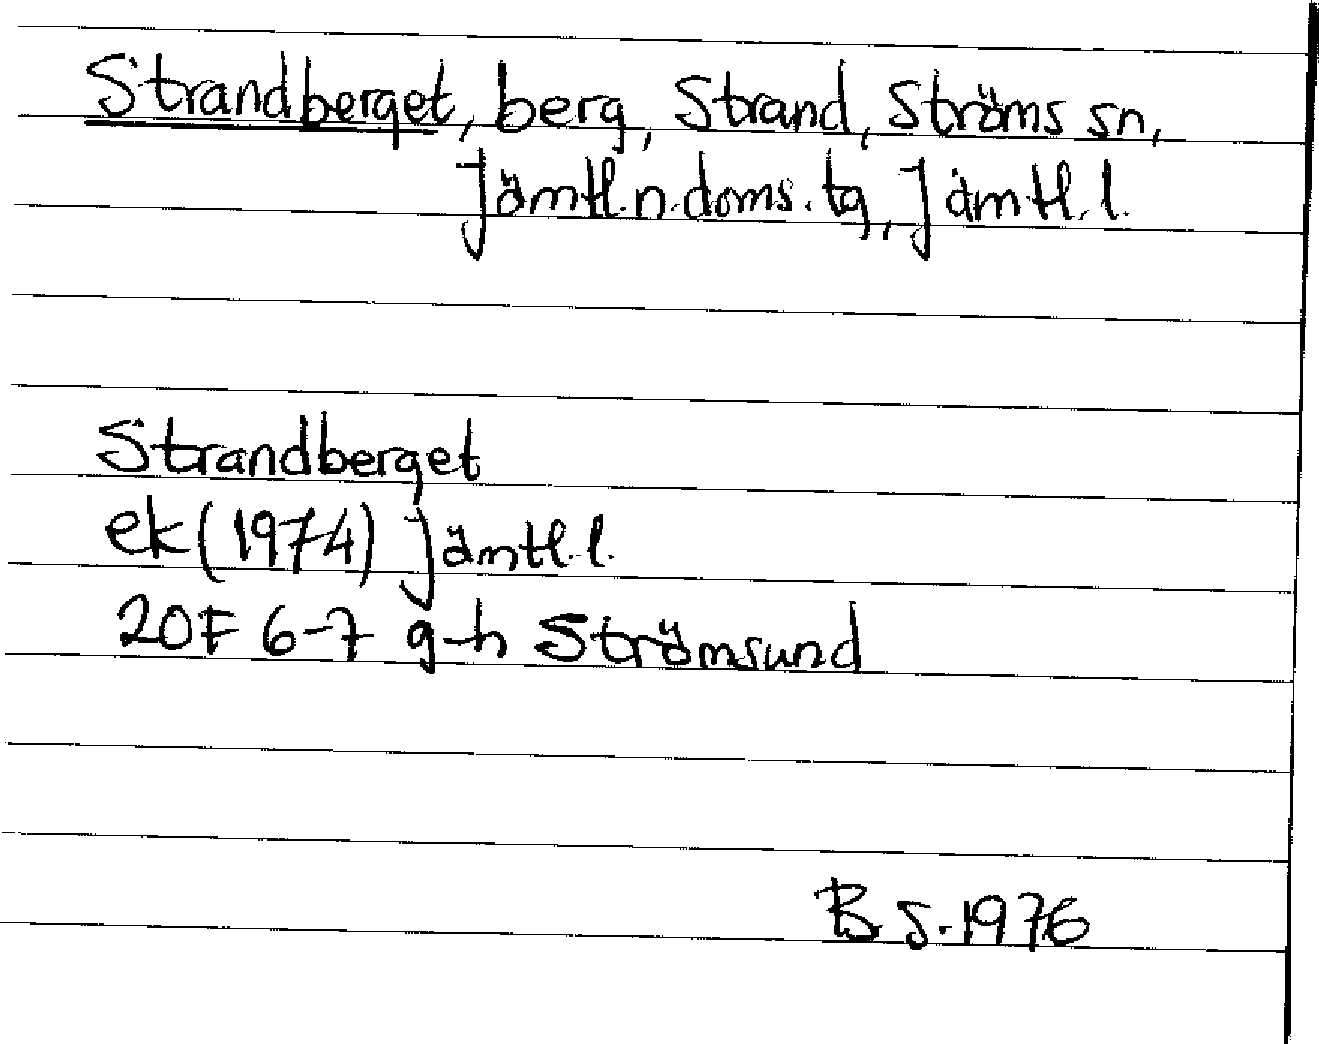 Strandberget, berg, Strand, Ströms sn,
Jämtl.n.doms.tg, Jämtl.l.
Strandberget
ek (1974) Jämtl.l.
20F 6-7 g-h Strömsund
B S. 1976